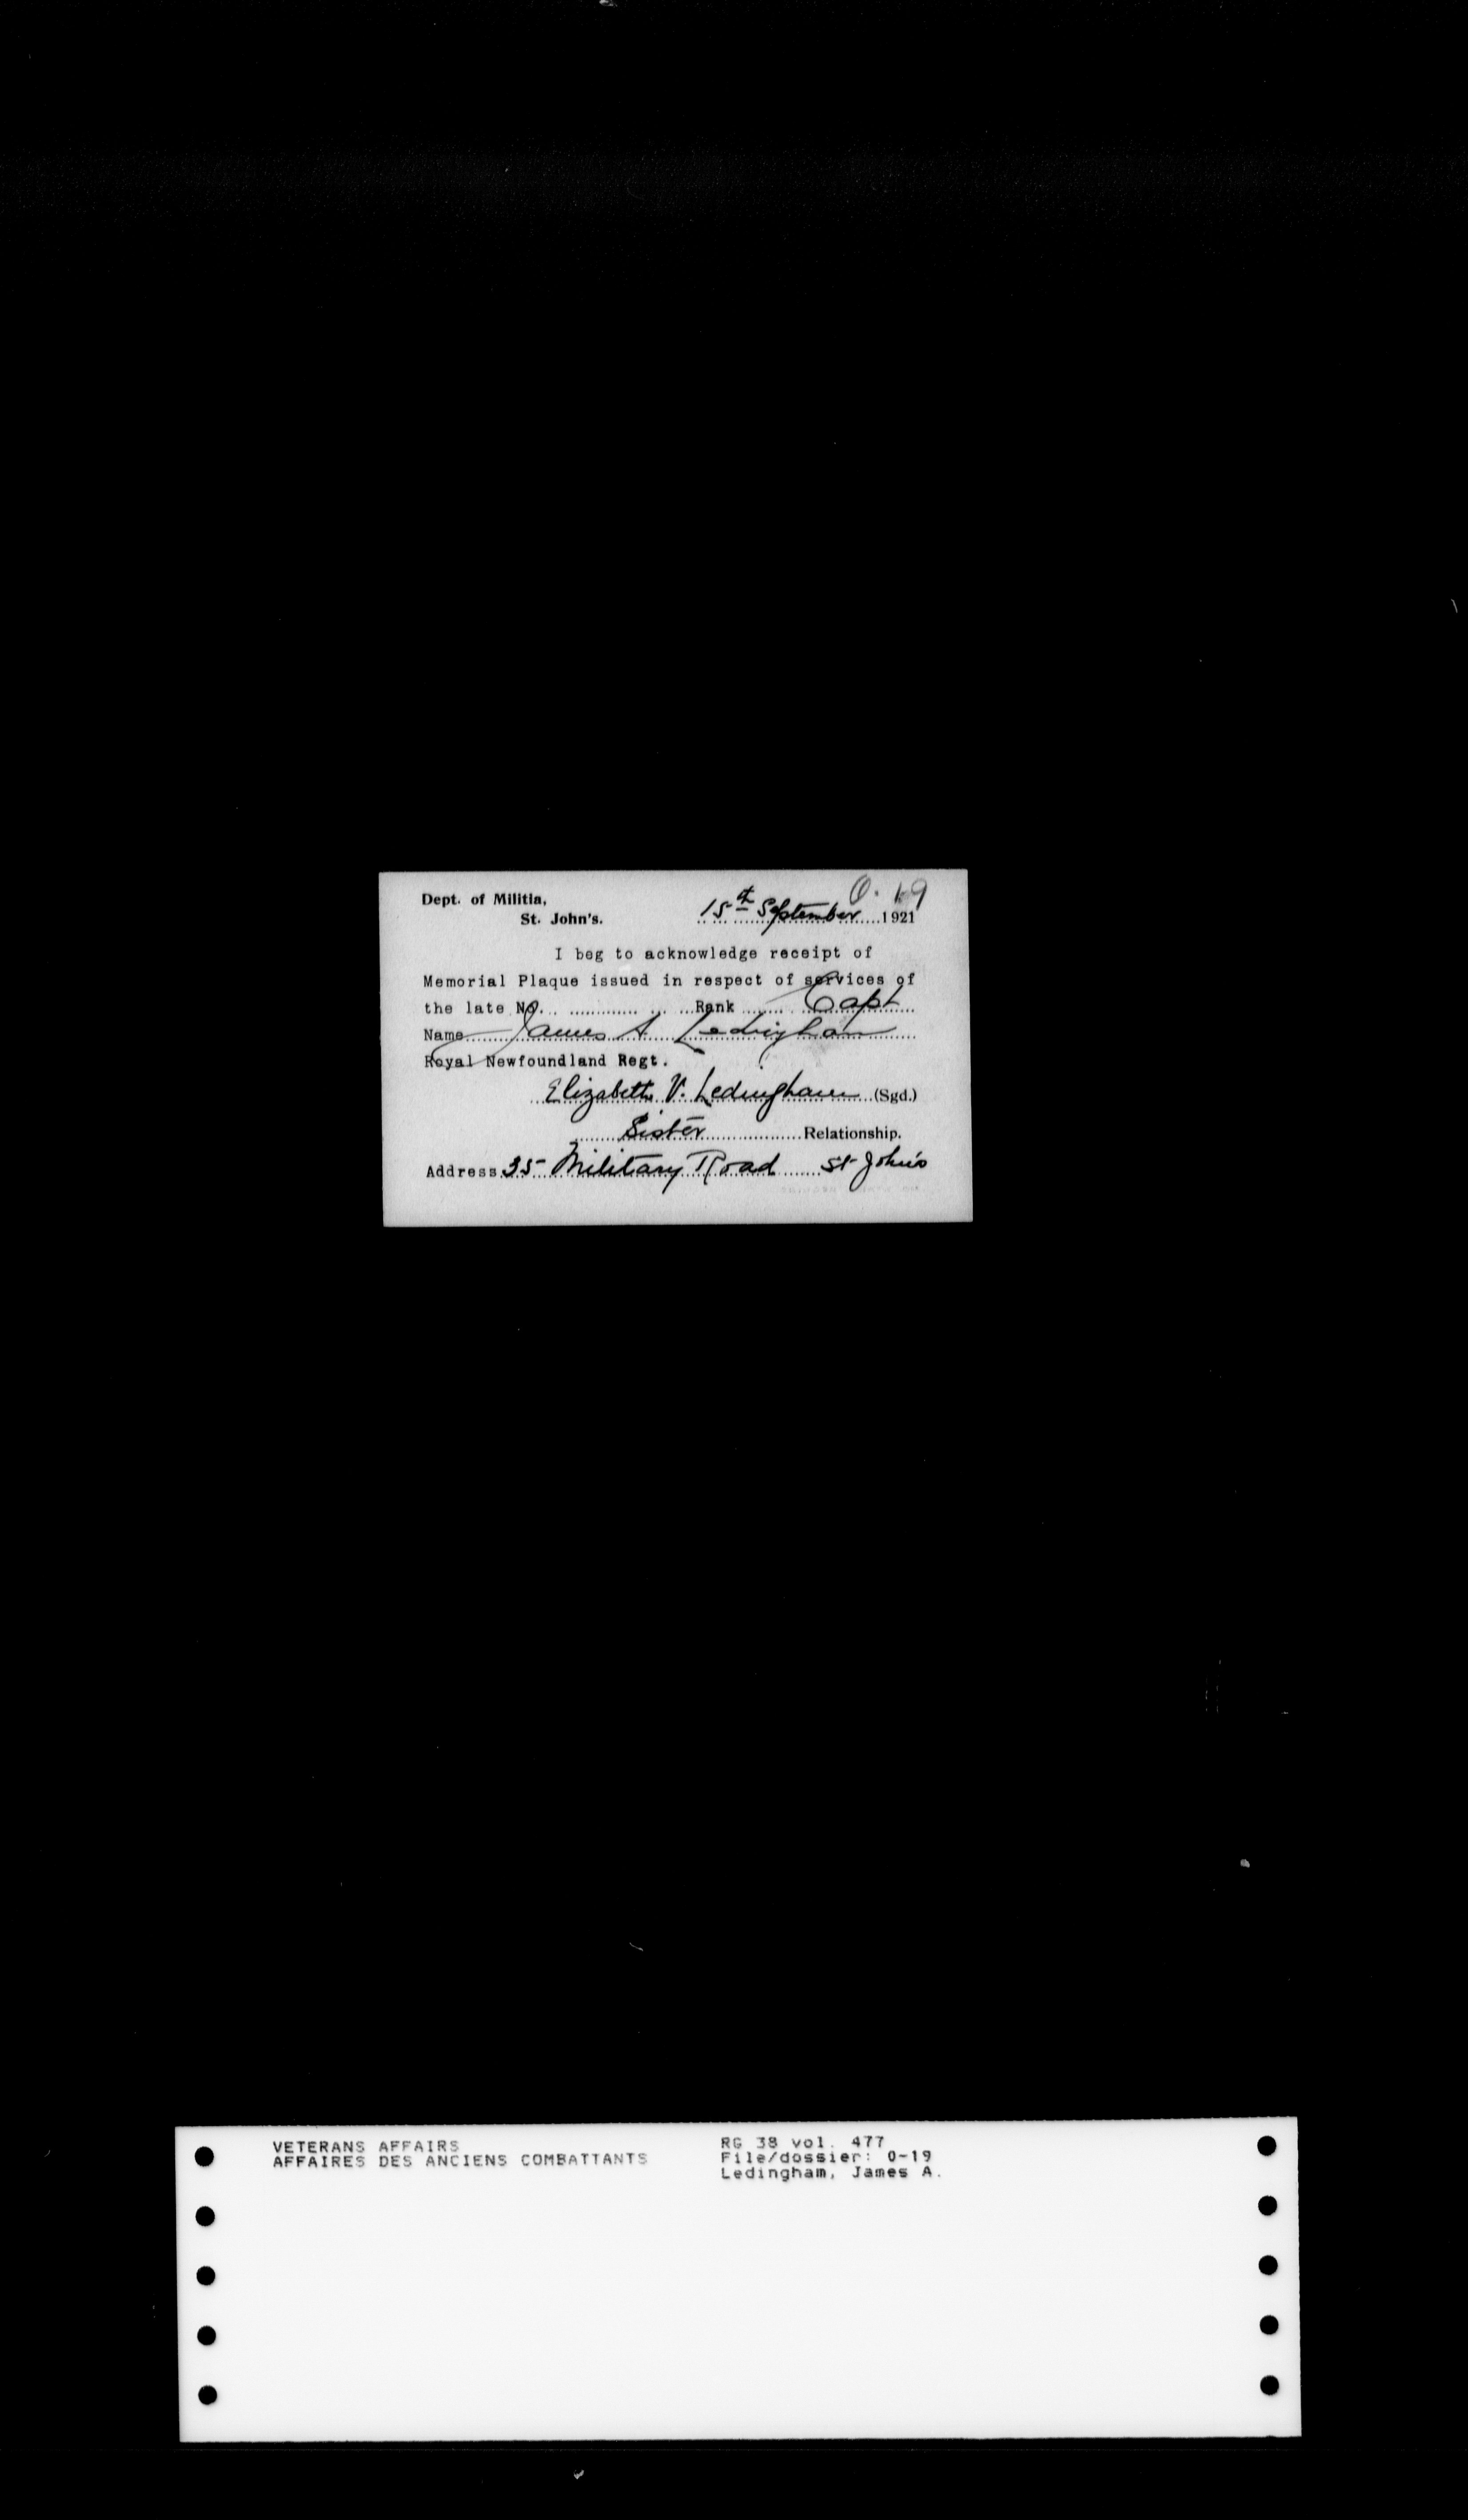 O. 19
Dept. of Militia,
St. John's. 15th September 1921
I beg to acknowledge receipt of
Memorial Plaque issued in respect of services of
the late No. Rank Capt
Name James A. Ledingham
Royal Newfoundland Regt.
Elizabeth V. Ledingham (Sgd.)
Sister Relationship.
Address 35 Military Road St John's
VETERANS AFFAIRS
AFFAIRES DES ANCIENS COMBATTANTS
RG 38 vol. 477
File/dossier: 0-19
Ledingham, James A.